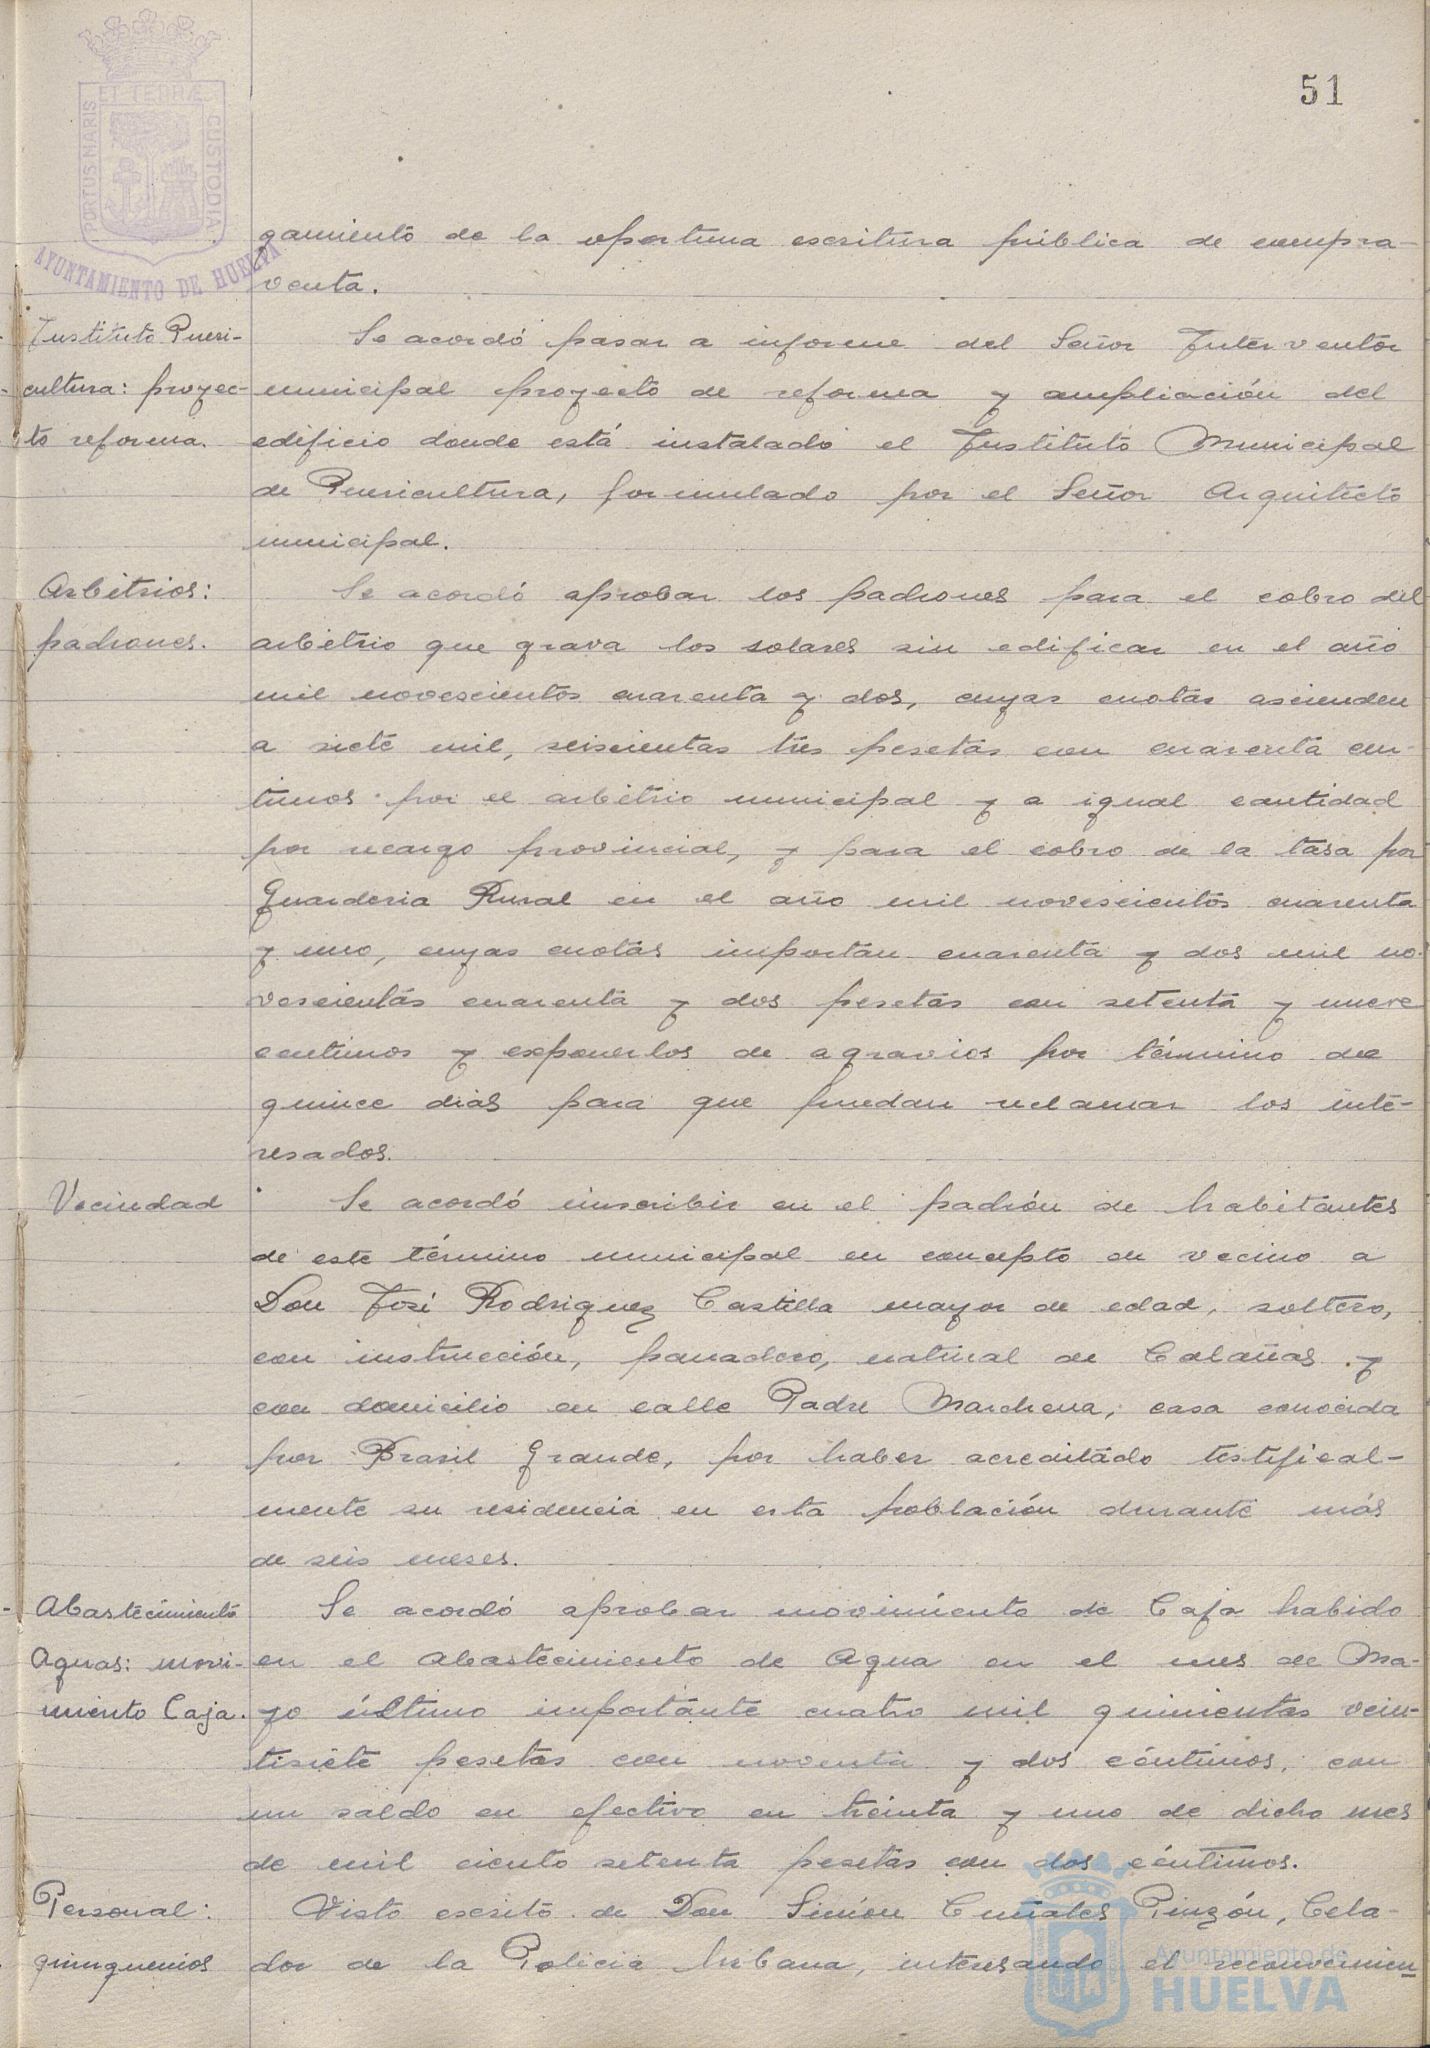 51
PORTUS MARIS ET TERRÆ CUSTODIA
AYUNTAMIENTO DE HUELVA
gamiento de la oportuna escritura pública de compra-
venta.
Instituto Pueri-
cultura: proyec-
to reforma.
Se acordó pasar a informe del Señor Interventor
municipal proyecto de reforma y ampliación del
edificio donde está instalado el Instituto Municipal
de Puericultura, formulado por el Señor Arquitecto
municipal.
Arbitrios:
padrones.
Se acordó aprobar los padrones para el cobro del
arbitrio que grava los solares sin edificar en el año
mil novescientos cuarenta y dos, cuyas cuotas ascienden
a siete mil, seiscientas tres pesetas con cuarenta cen-
timos por el arbitrio municipal y a igual cantidad
por recargo provincial, y para el cobro de la tasa por
Guarderia Rural en el año mil novescientos cuarenta
y uno, cuyas cuotas importan cuarenta y dos mil no-
vescientas cuarenta y dos pesetas con setenta y nueve
centimos y exponerlos de agravios por término de
quince dias para que puedan reclamar los inte-
resados.
Vecindad
Se acordó inscribir en el padrón de habitantes
de este término municipal en concepto de vecino a
Don José Rodriguez Castilla mayor de edad, soltero,
con instrucción, panadero, natural de Calañas y
con domicilio en calle Padre Marchena, casa conocida
por Brasil Grande, por haber acreditado testifical-
mente su residencia en esta población durante más
de seis meses.
Abastecimiento
Aguas: movi-
miento Caja.
Se acordó aprobar movimiento de Caja habido
en el Abastecimiento de Agua en el mes de Ma-
yo último importante cuatro mil quinientas vein-
tisiete pesetas con noventa y dos céntimos, con
un saldo en efectivo en treinta y uno de dicho mes
de mil ciento setenta pesetas con dos céntimos.
Personal:
quinquenios
Visto escrito de Don Simón Pinzón, Cela-
dor de la Policia Urbana, interesando el reconocimien
Ayuntamiento de
HUELVA